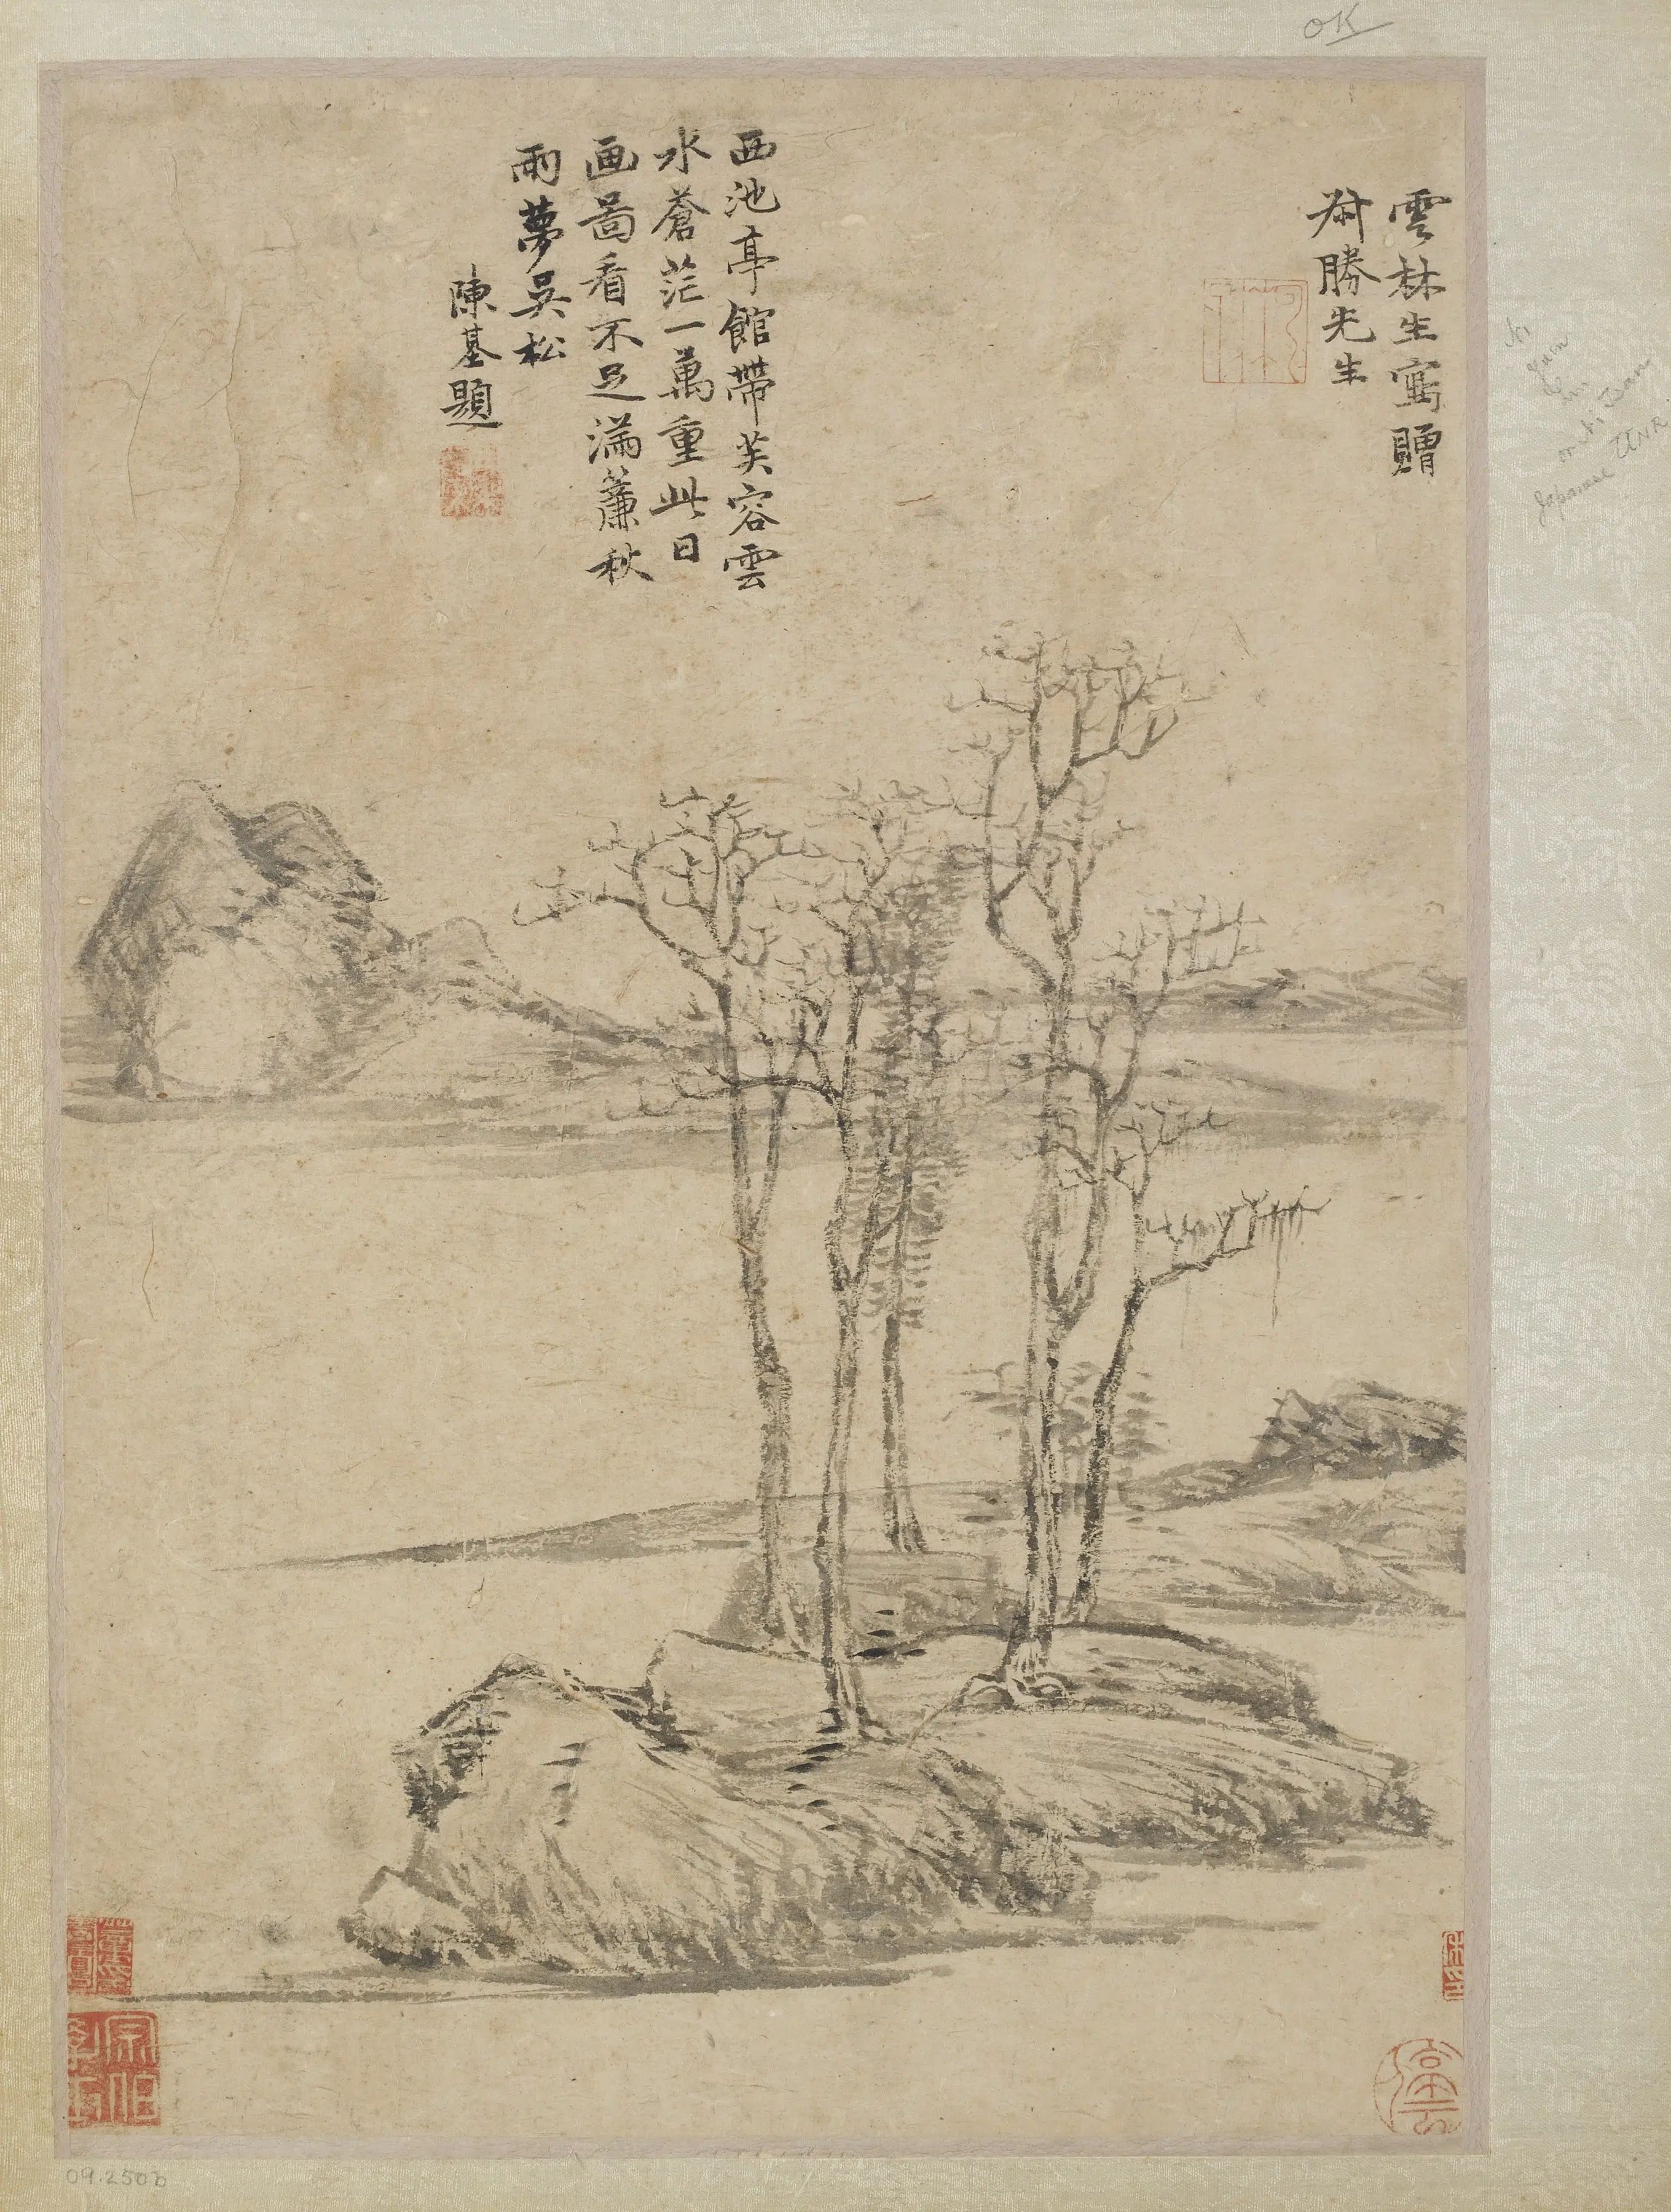 OK
雲林生寫贈
叔勝先生
西池亭館帶芙容雲
水蒼茫一萬重此日
画啚看不足滿簾秋
雨夢吳松
陳基題
Japanese
09.250b